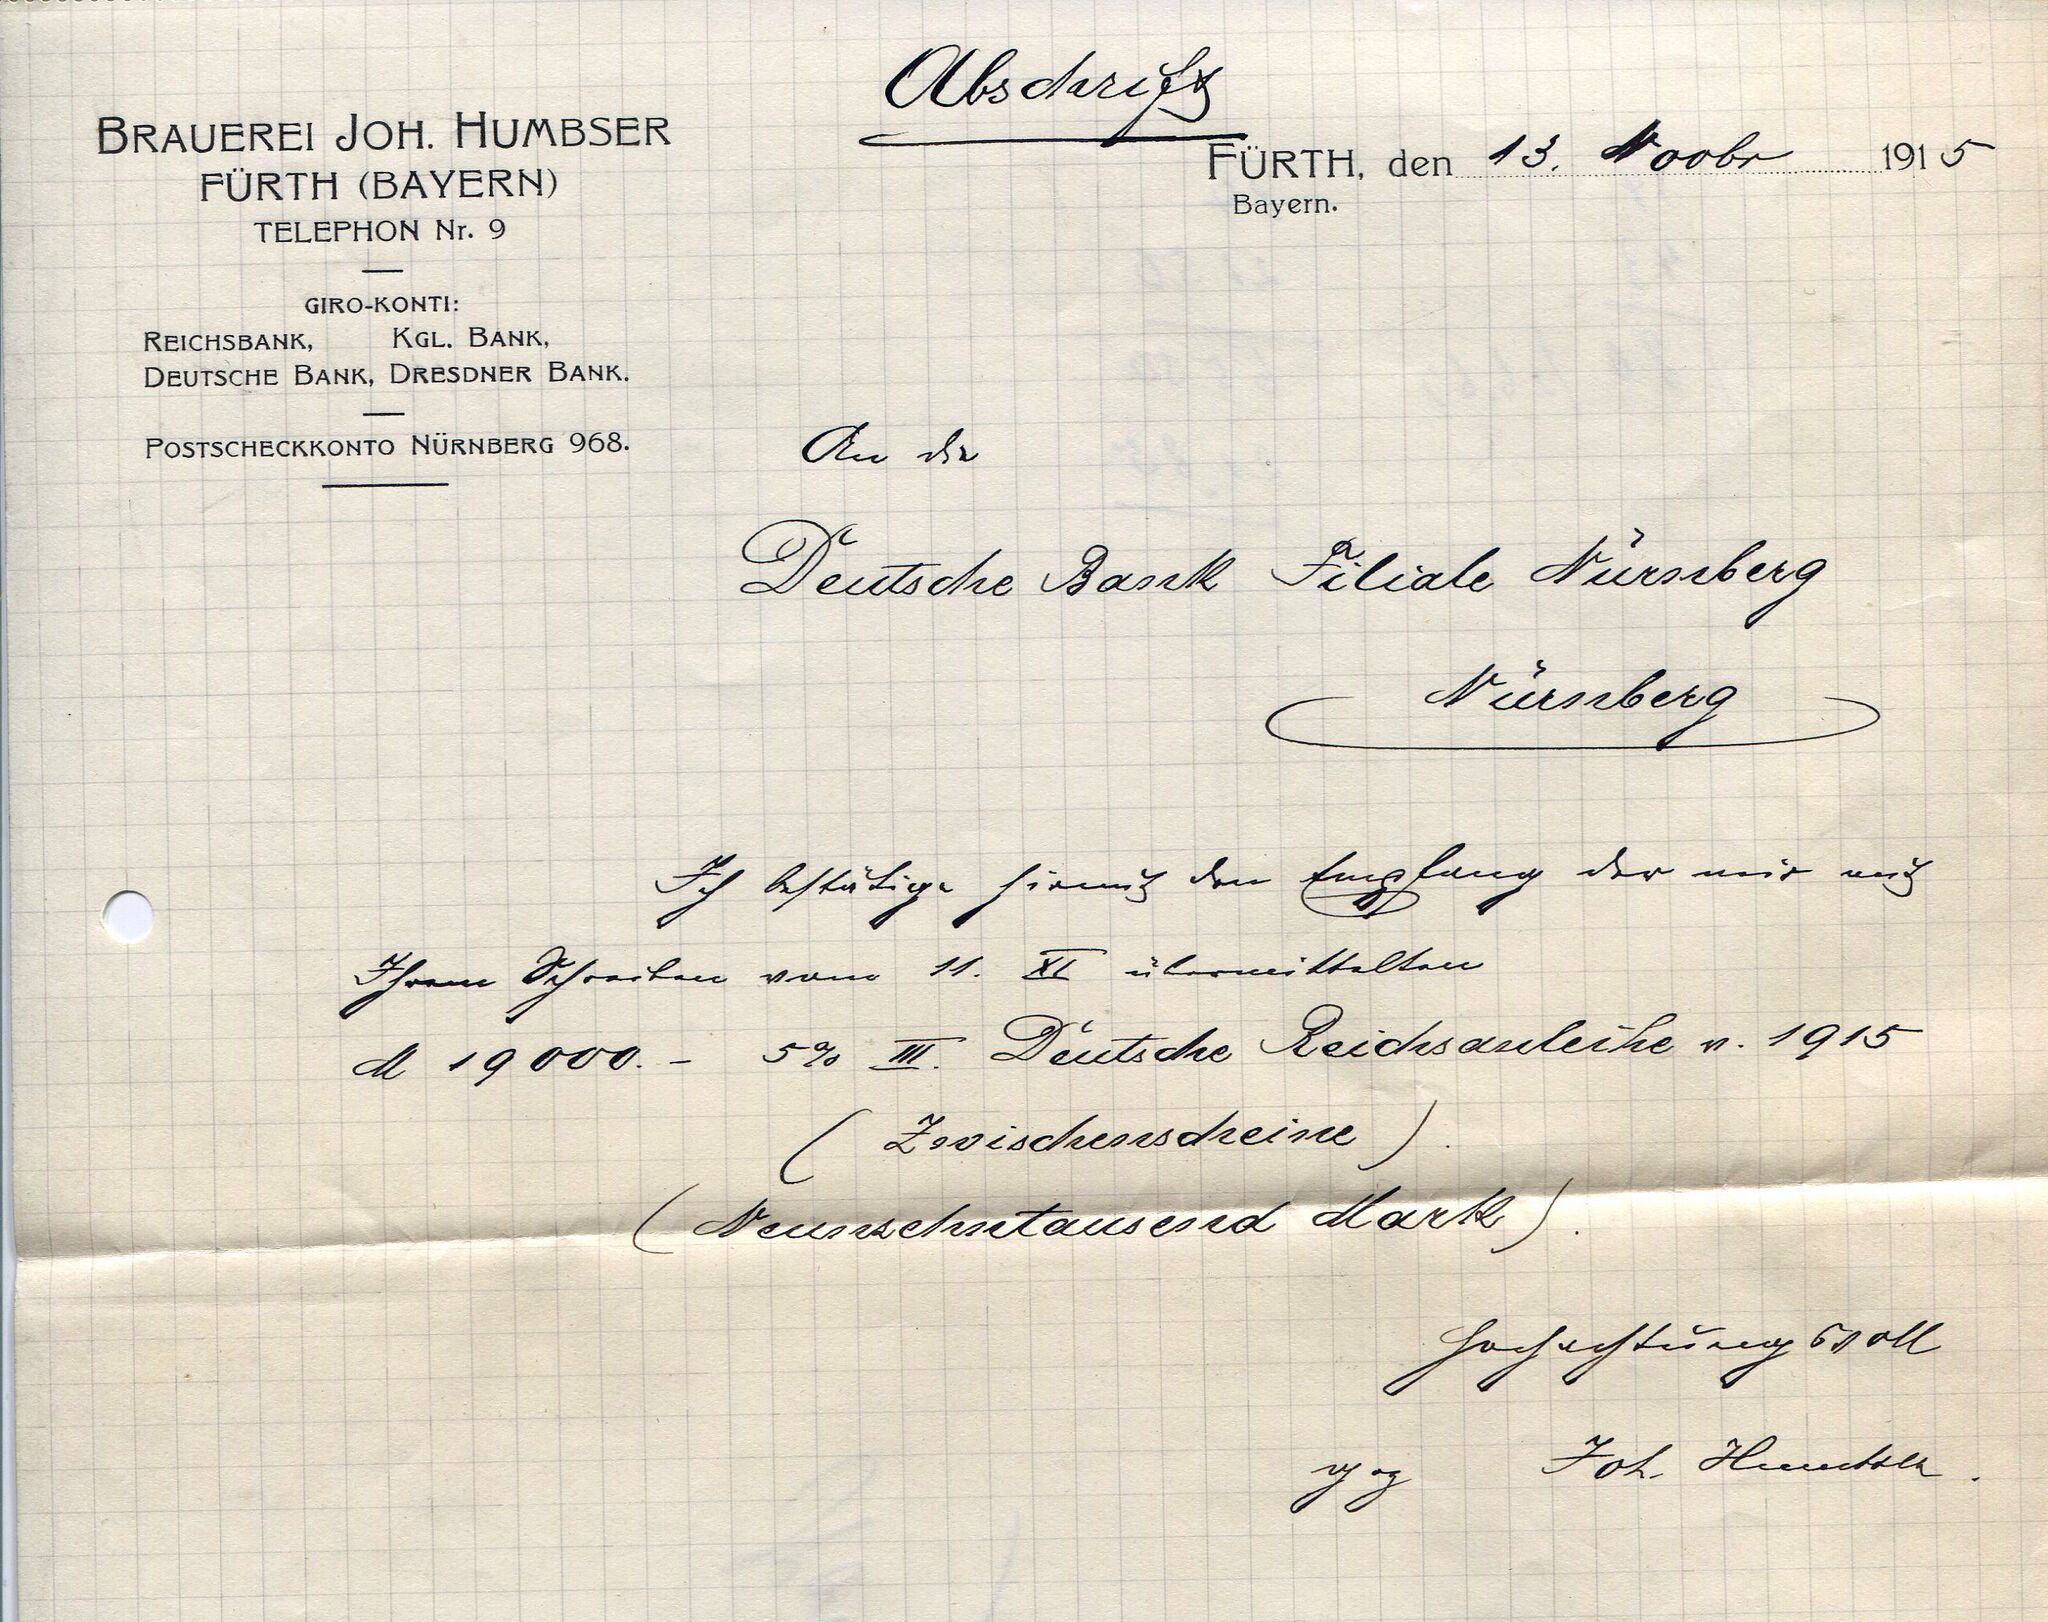 Abschrift
BRAUEREI JOH. HUMBSER
FÜRTH (BAYERN)
TELEPHON Nr. 9
GIRO-KONTI:
REICHSBANK, KGL. BANK,
DEUTSCHE BANK, DRESDNER BANK.
POSTSCHECKKONTO NÜRNBERG 968.
FÜRTH, den 13. Novbr 1915
Bayern.
An die
Deutsche Bank Filiale Nürnberg
Nürnberg
Ich bestätige hiemit den Empfang der mir mit
Ihrem Schreiben vom 11. XI übermittelten
M 19000.- 5% III. Deutsche Reichsanleihe v. 1915
(Zwischenscheine).
(Neunzehntausend Mark).
Hochachtungsvoll
Joh. Humbser.